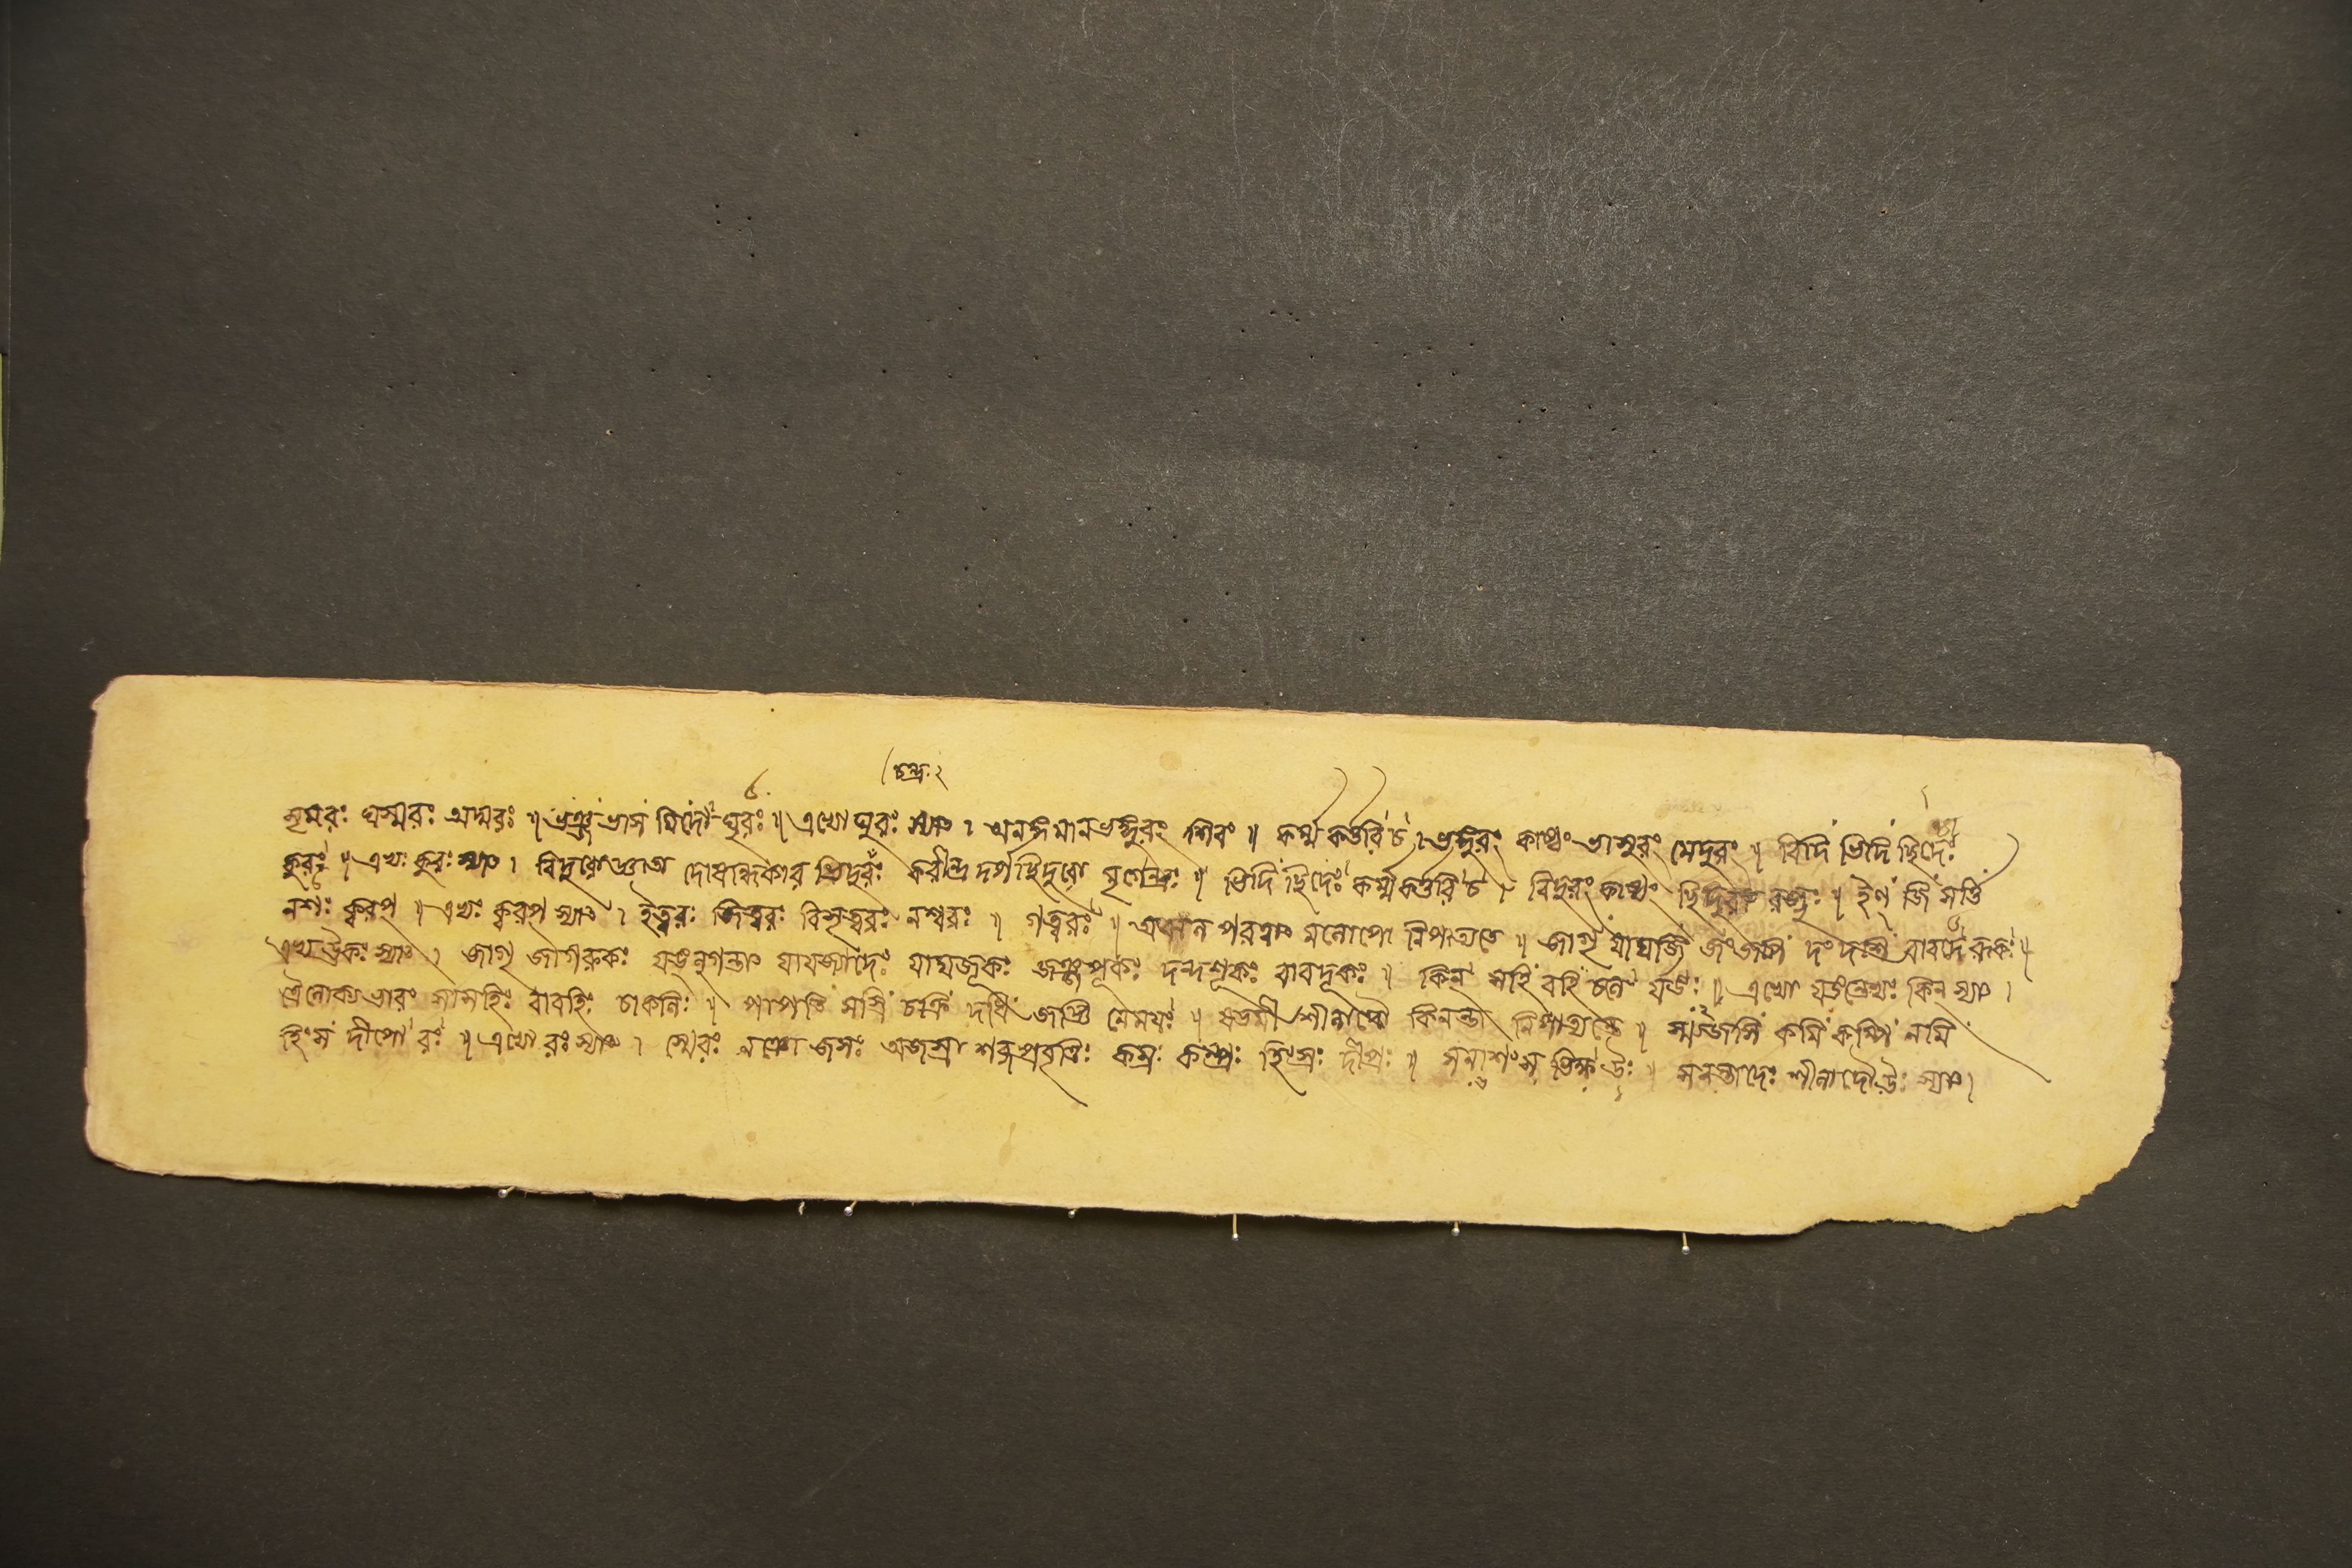 চন্দ্র ২
সৃমরঃ ঘস্মরঃ অদ্মরঃ ॥ ভঞ্জ ভাস মিদো ঘুরঃ ॥ এভ্যো ঘুরঃ স্যাৎ । অনঙ্গমানভঙ্গুরং শিবং ॥ কর্ম্মকর্ত্তরি চ । ভঙ্গুরং কাষ্ঠং ভাসুরং মেদুরং ॥ বিদি ভিদি ছিদেঃ
কুরঃ ॥ এভ্যঃ কুরঃ স্যাৎ । বিদুরো দোষান্ধকার ভিদুরঃ করীন্দ্র দর্প ছিদুরো মৃগেন্দ্রঃ ॥ ভিদি ছিদেঃ কর্ম্মকর্ত্তরি চ । ভিদুরং কাষ্ঠং ছিদুরা রজ্জুঃ ॥ ইণ্ জি সর্ত্তি
নশঃ ক্বরপ্ ॥ এভ্যঃ ক্বরপ্ স্যাৎ । ইত্বরঃ জিত্বরঃ বিসৃত্বরঃ নশ্বরঃ ॥ গত্বরঃ ॥ মলোপো নিপাত্যতে ॥ জাগৃ যাযজি জংজপ দংদশি বাবদে রূকঃ ॥
এভ্য ঊকঃ স্যাৎ । জাগৃ জাগরূকঃ যঙলুগন্তাৎ যাযজ্যাদেঃ যাযজূকঃ জঞ্জপূকঃ দন্দশূকঃ বাবদূকঃ ॥ কির্ সহি বহি চলে র্যঙঃ ॥ এভ্যো যঙন্তেভ্যঃ কির্ স্যাৎ ।
ত্রৈলোক্যভারং সাসহিঃ বাবহিঃ চাচলিঃ ॥ পাপতি সস্রি চক্রি দধি জজ্ঞি নেময়ঃ ॥ শীলাদৌ কিরন্তা নিপাত্যন্তে ॥ স্ম্যজসি কমি কম্পি নমি
হিংস দীপো রঃ ॥ এভ্যো রঃ স্যাৎ । স্মেরং জসঃ অজস্রা শব্দপ্রবৃত্তিঃ কম্রঃ কম্প্রঃ হিংস্রঃ দীপ্রঃ ॥ সনাশংস ভিক্ষ উঃ ॥ সনন্তাদেঃ শীলাদৌ উঃ স্যাৎ ।